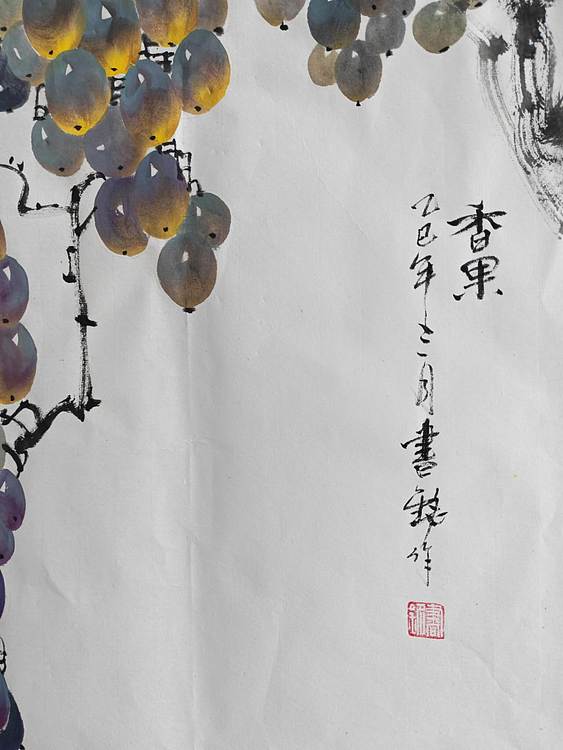 香果
乙巳年三月書作